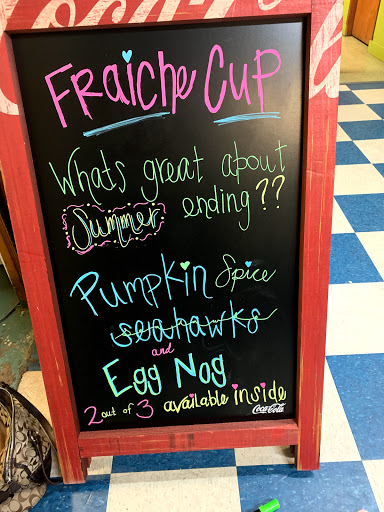 Coca-Cola
Fraiche Cup
Whats great about
Summer ending??
Pumpkin Spice
seahawks
and
Egg Nog
2 out of 3 available inside
Coca-Cola